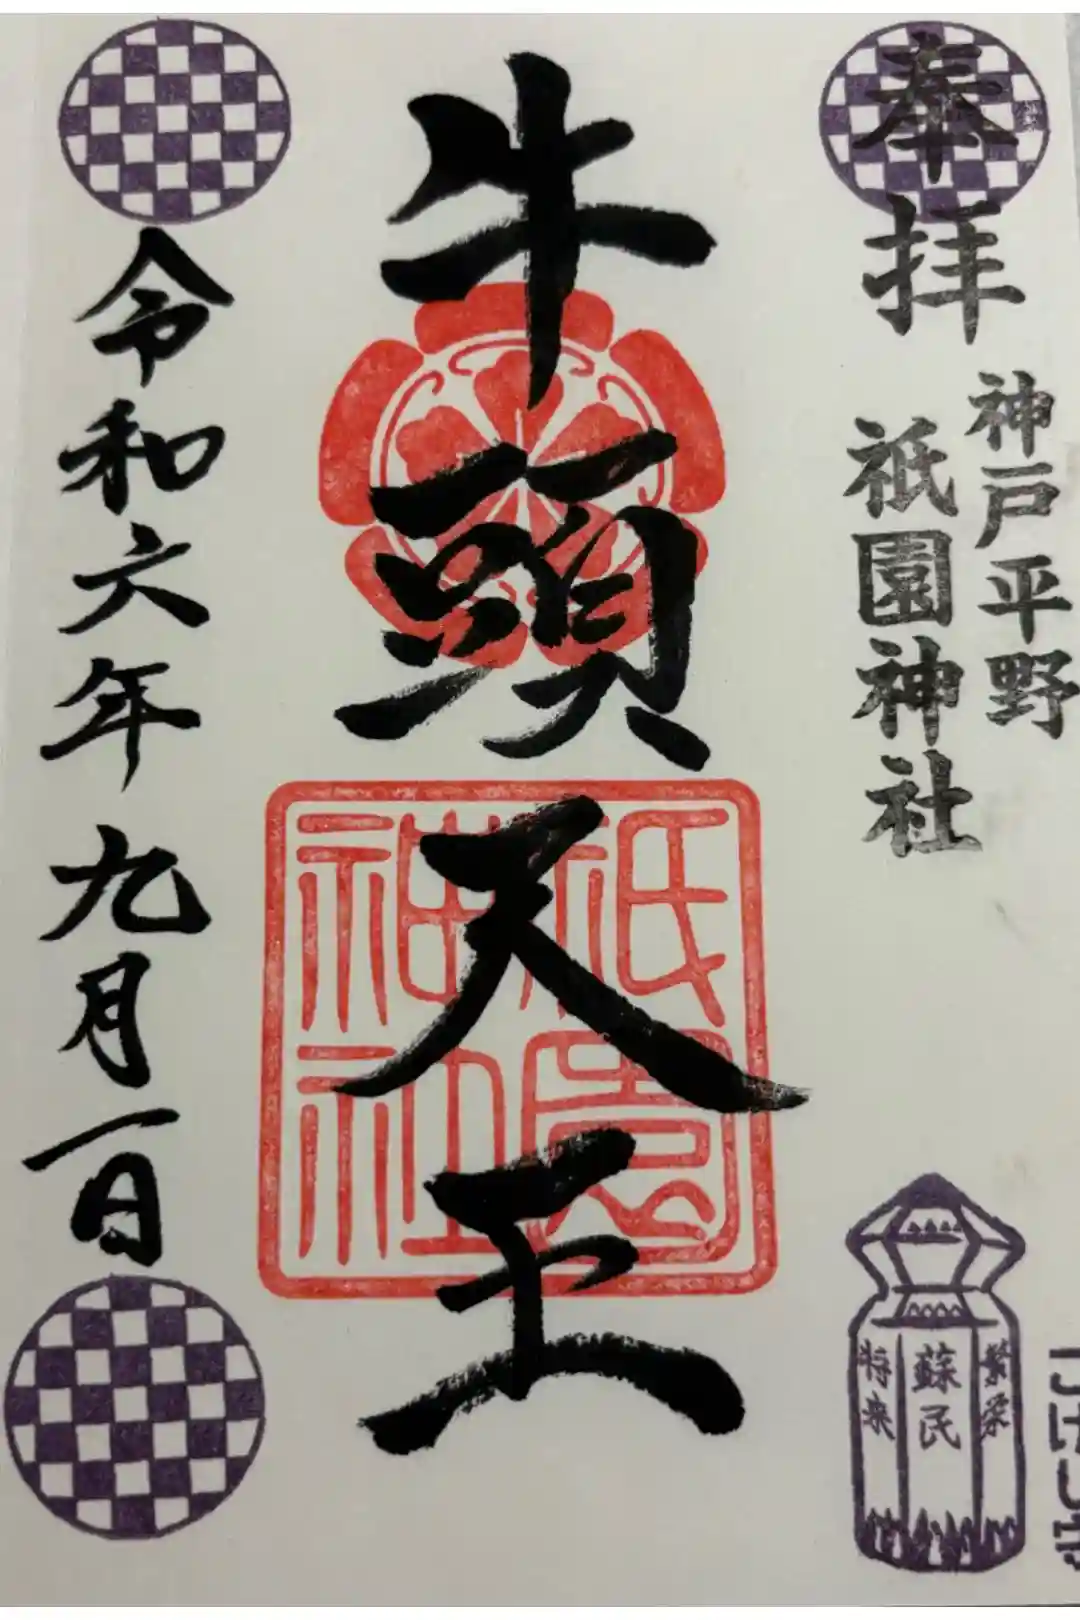 奉拝
神戸平野
祇園神社
牛頭天王
祇園
神社
令和六年九月一日
繁栄
蘇民
将来